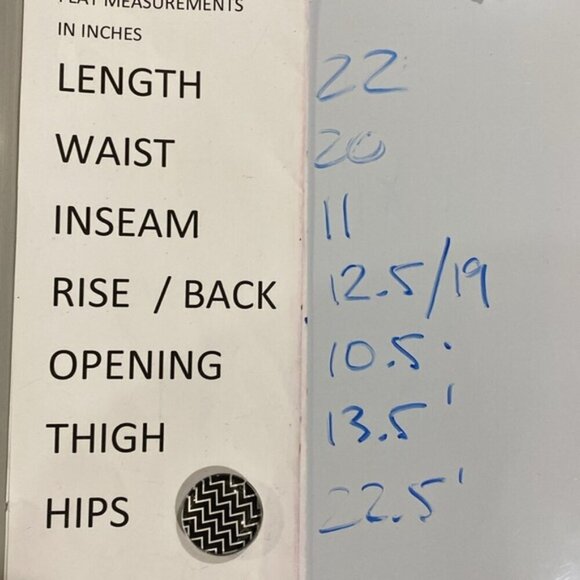 FLAT MEASUREMENTS
IN INCHES
LENGTH 22
WAIST 20
INSEAM 11
RISE / BACK 12.5/19
OPENING 10.5.
THIGH 13.5'
HIPS 22.5'